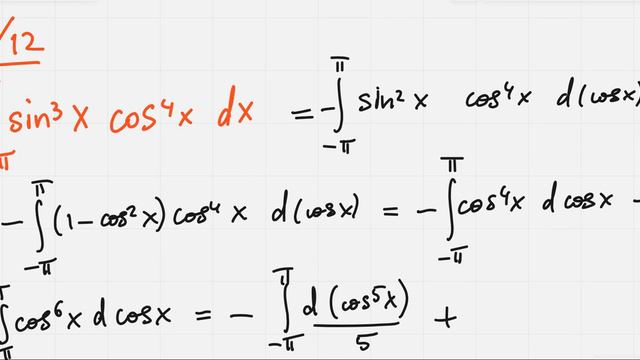 /12
sin³x cos⁴x dx = -∫_{-π}^{π} sin²x cos⁴x d(cosx)
-∫_{-π}^{π} (1-cos²x) cos⁴x d(cosx) = -∫_{-π}^{π} cos⁴x dcosx -
∫ cos⁶x dcosx = -∫_{-π}^{π} d(cos⁵x)/5 +